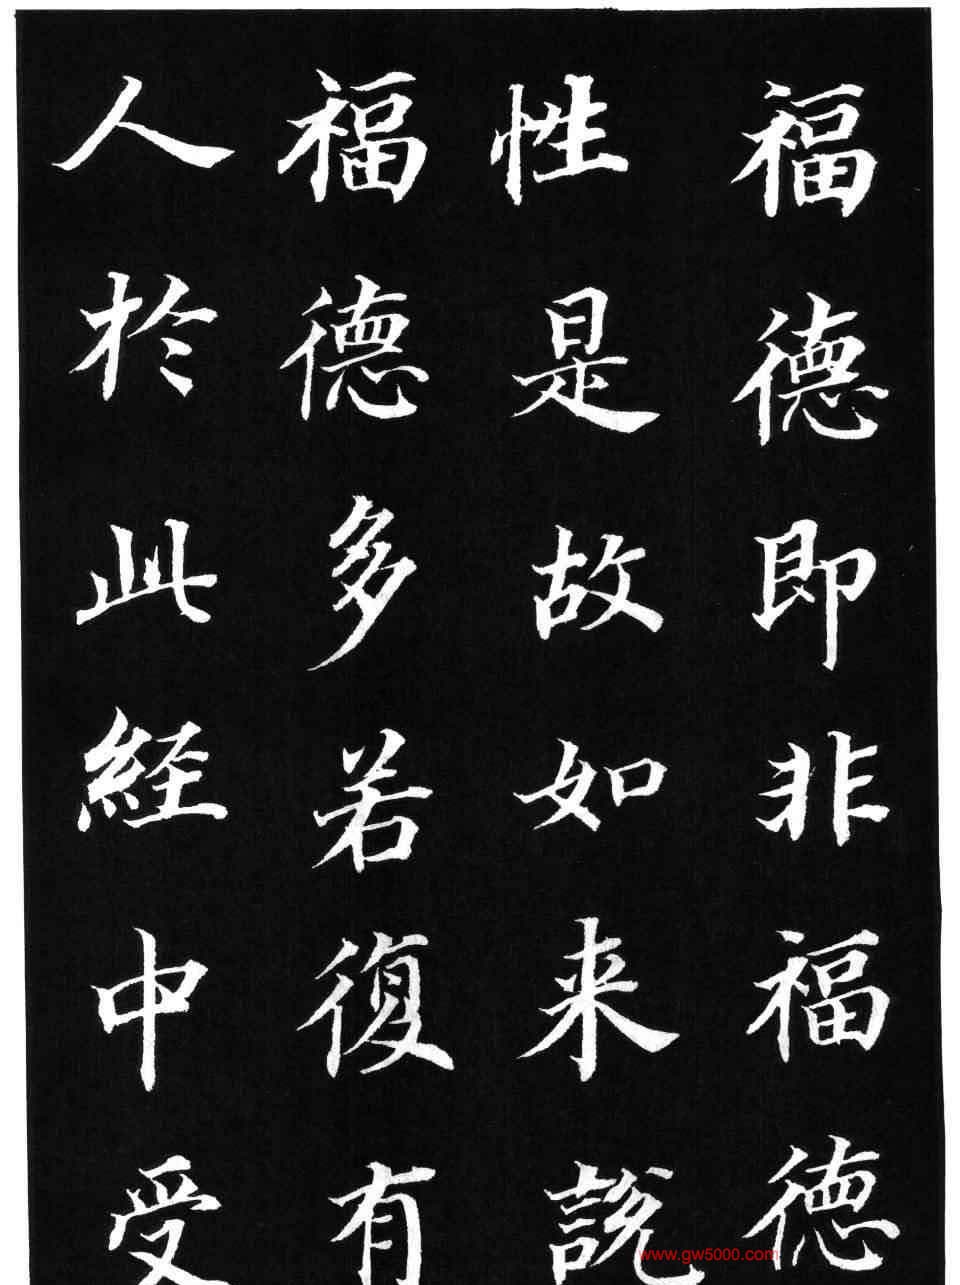 福德即非福德
性是故如来說
福德多若復有
人於此経中受
www.gw5000.com